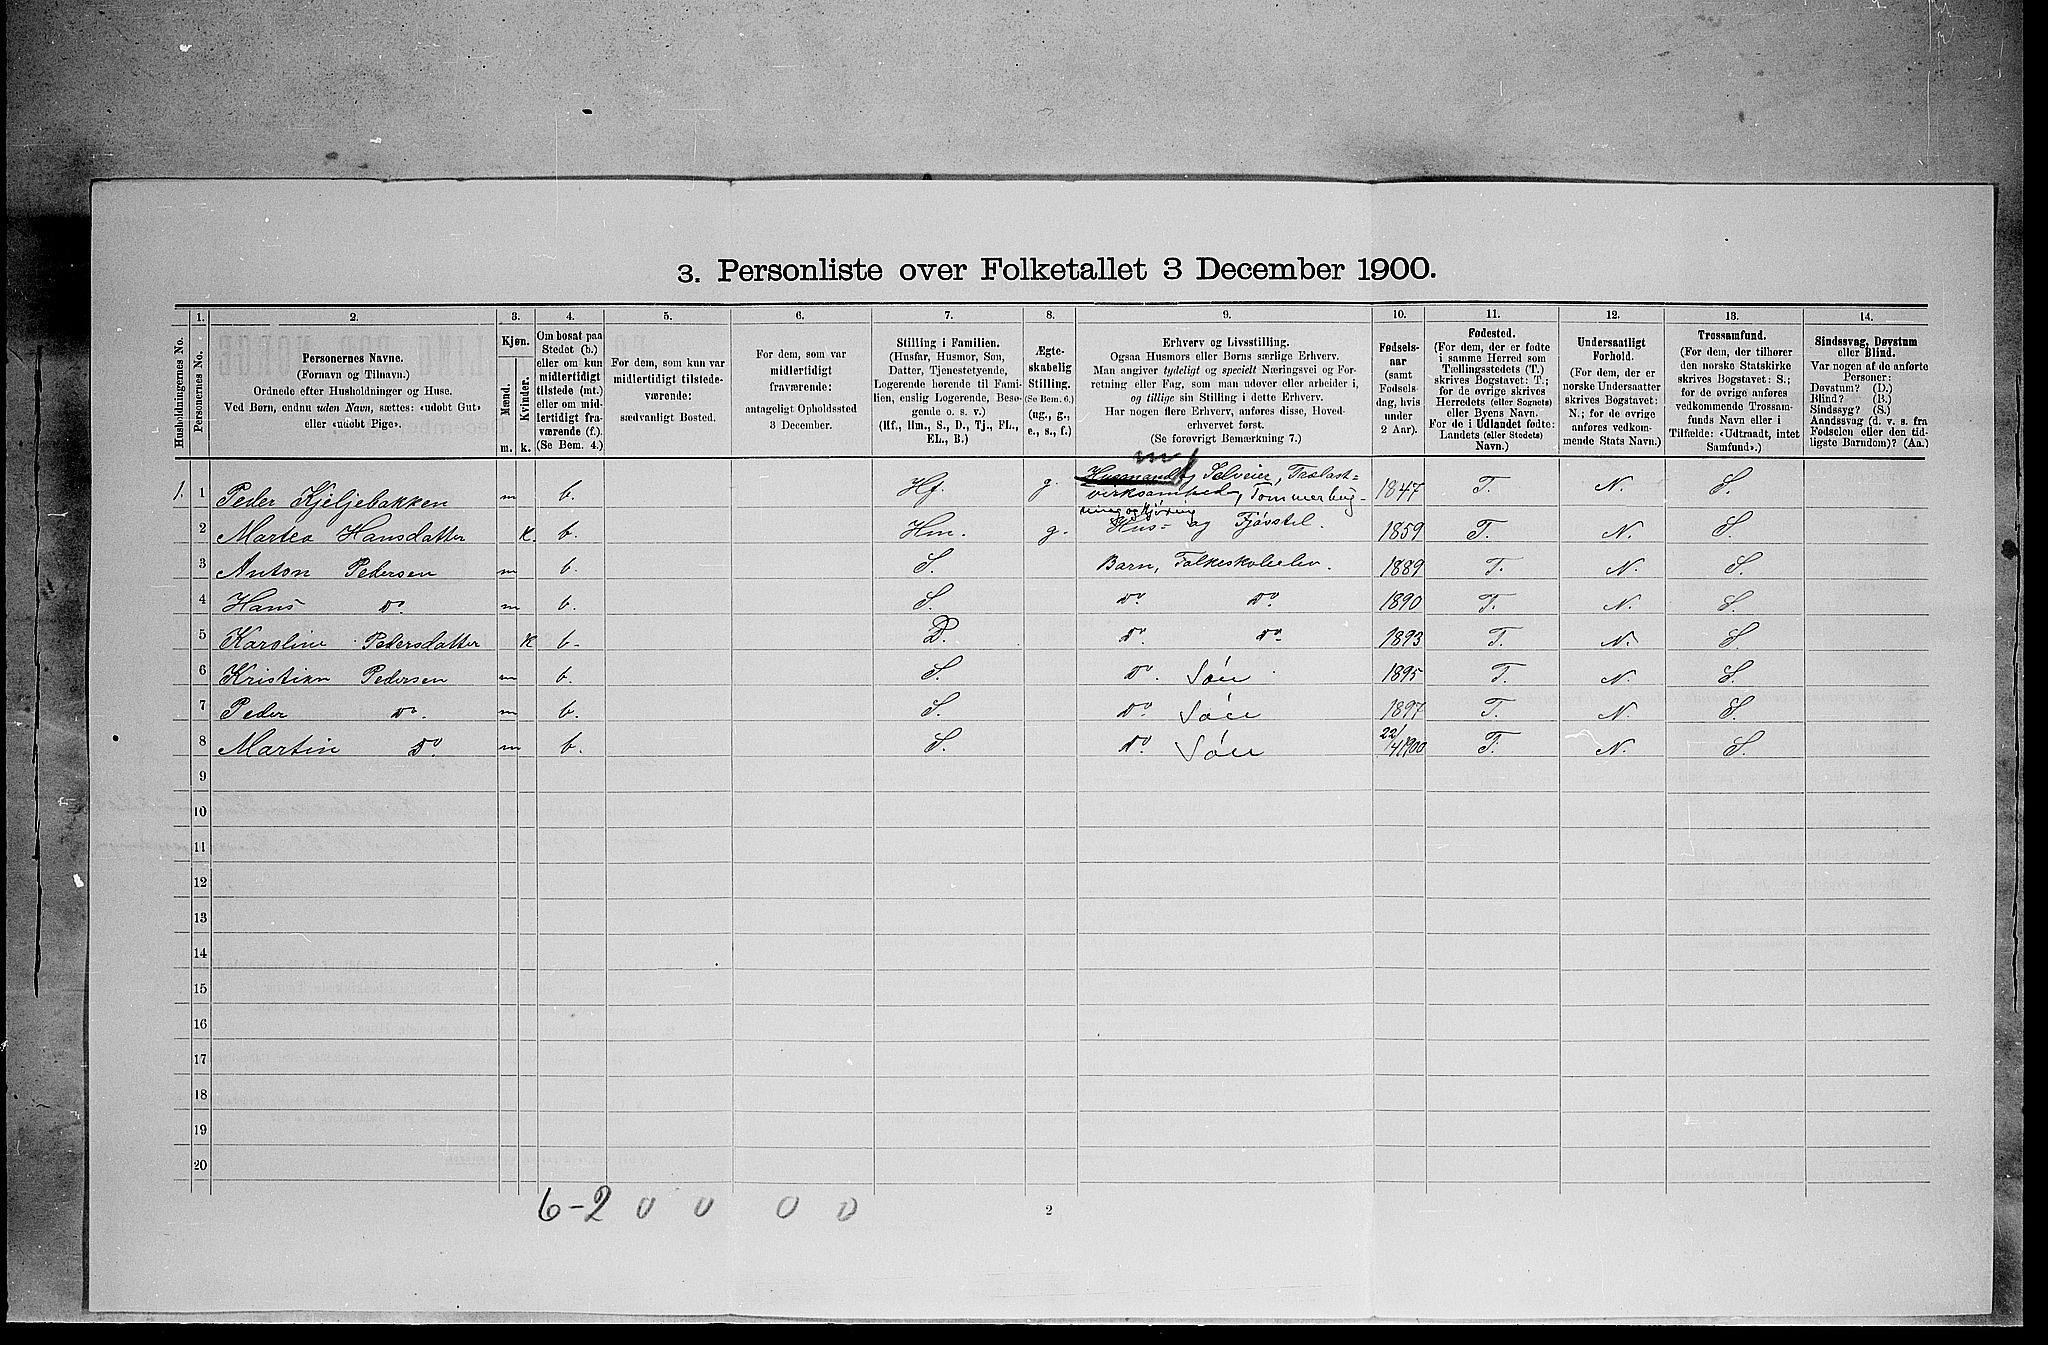 3. Personliste over Folketallet 3 December 1900.
Husholdningernes No.
1.
Personernes No.
2.
Personernes Navne.
(Fornavn og Tilnavn.)
Ordnede efter Husholdninger og Huse.
Ved Børn, endnu uden Navn, sættes: «udøbt Gut»
eller «udøbt Pige».
3.
Kjøn.
Mænd.
Kvinder.
m. k.
4.
Om bosat paa
Stedet (b.)
eller om kun
midlertidigt
tilstede (mt.)
eller om mid-
lertidigt fra-
værende (f.).
(Se Bem. 4.)
5.
For dem, som kun var
midlertidigt tilstede-
værende:
sædvanligt Bosted.
6.
For dem, som var
midlertidigt
fraværende:
antageligt Opholdssted
3 December.
7.
Stilling i Familien.
(Husfar, Husmor, Søn,
Datter, Tjenestetyende,
Logerende hørende til Fami-
lien, enslig Logerende, Besø-
gende o. s. v.)
(Hf., Hm., S., D., Tj., FL.,
EL., B.)
8.
Ægte-
skabelig
Stilling.
(Se Bem. 6.)
(ug., g.,
e., s., f.)
9.
Erhverv og Livsstilling.
Ogsaa Husmors eller Børns særlige Erhverv.
Man angiver tydeligt og specielt Næringsvei og For-
retning eller Fag, som man udøver eller arbeider i,
og tillige sin Stilling i dette Erhverv.
Har nogen flere Erhverv, anføres disse, Hoved-
erhvervet først.
(Se forøvrigt Bemærkning 7.)
10.
Fødsels-
aar
(samt
Fødsels-
dag, hvis
under
2 Aar).
11.
Fødested.
(For dem, der er fødte
i samme Herred som
Tællingsstedets (T.)
skrives Bogstavet: T.;
for de øvrige skrives
Herredets (eller Sognets)
eller Byens Navn.
For de i Udlandet fødte:
Landets (eller Stedets)
Navn.)
12.
Undersaatligt
Forhold.
(For dem, der er
norske Undersaatter
skrives Bogstavet:
N.; for de øvrige
anføres vedkom-
mende Stats Navn.)
13.
Trossamfund.
(For dem, der tilhører
den norske Statskirke
skrives Bogstavet: S.;
for de øvrige anføres
vedkommende Trossam-
funds Navn eller i
Tilfælde: «Udtraadt, intet
Samfund».)
14.
Sindssvag, Døvstum
eller Blind.
Var nogen af de anførte
Personer:
Døvstum? (D.)
Blind? (B.)
Sindssyg? (S.)
Aandssvag (d. v. s. fra
Fødselen eller den tid-
ligste Barndom)? (Aa.)
1. 1 Peder Kjeljebakken m b. Hf. g. Husmand og Selveier, Trælast=
virksomhed, Tommerhug-
ning og kjøring 1847 T. N. S.
2 Martea Hansdatter k. b. Hm. g. Hus- og Fjøvstel. 1859 T. N. S.
3 Anton Pedersen m b. S. Barn, Folkeskoleelev. 1889 T. N. S.
4 Hans Do. m b. S. Do. Do. 1890 T. N. S.
5 Karoline Pedersdatter k b- D. Do. Do. 1893 T. N. S.
6 Kristian Pedersen m b. S. Do. Søn 1895 T. N. S.
7 Peder Do. m b. S. Do. Søn 1897 T. N. S.
8 Martin Do. m b. S. Do. Søn 22/4 1900 T. N. S.
9
10
11
12
13
14
15
16
17
18
19
20
6-2 0 0 0 0
2